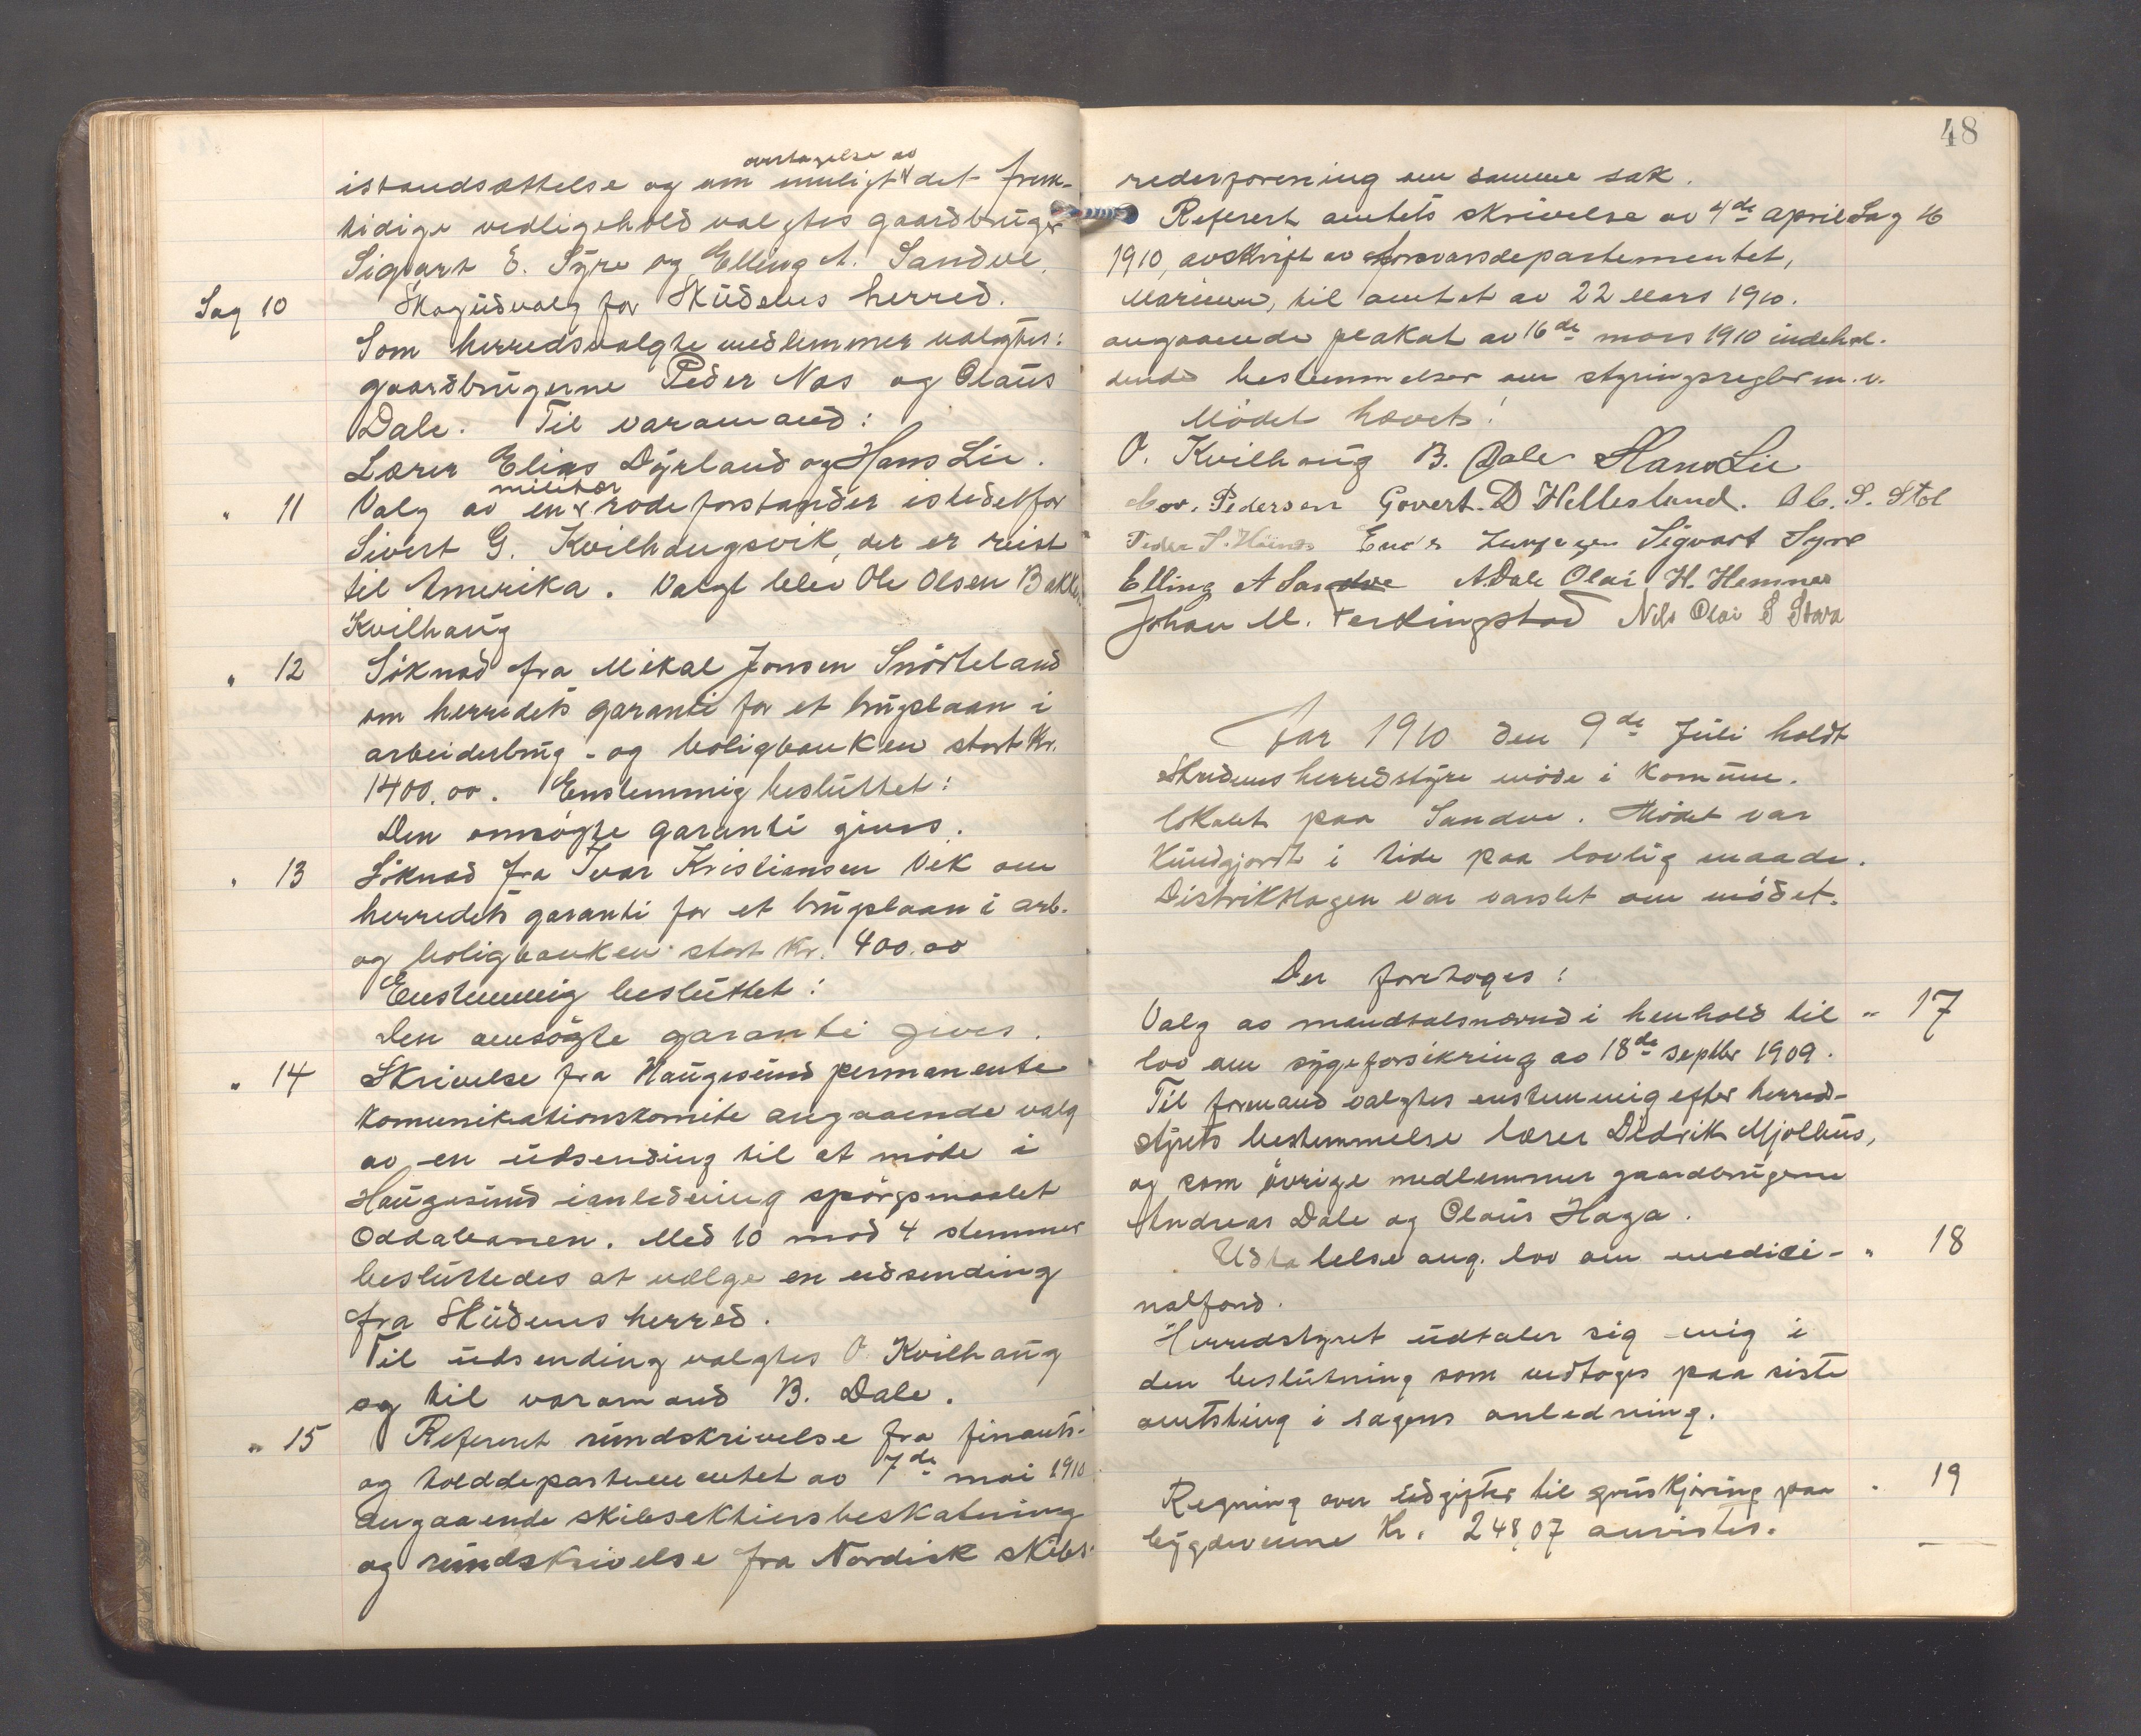 overtagelse av
istandsættelse og om muligt det frem-
tidige vedligehold valgtes gaardbruger
Sigvart E. Syre og Elling A. Sandve.
Sag 10 Skogüdvalg for Skudenes herred.
Som herredsvalgte medlemmer valgtes:
gaardbrügerne Peder Nas og Olaüs
Dale. Til varamand:
Lærer Elias Dyrland og Hans Lie.
militær
" 11 Valg av en rodeforstander istedetfor
Sivert G. Kvilhaugsvik, der er reist
til Amerika. Valgt blev Ole Olsen Bakke
Kvilhaüg
" 12 Söknad fra Mikal Jonsen Snörteland
om herredets garanti for et brugslaan i
arbeiderbrüg- og boligbanken stort Kr.
1400.00. Enstemmig beslüttet:
Den ansögte garanti gives.
" 13 Söknad fra Ivar Kristiansen Vik om
herredets garanti for et brugslaan i arb.
og boligbanken stort Kr. 400.00
Enstemmig beslüttet:
Den ansögte garanti gives.
" 14 Skrivelse fra Haügesünd permanente
Komunikationskomite angaaende valg
av en üdsending til et möte i
Haügesünd ianledning spörgsmaalet
Oddabanen. Med 10 mod 4 stemmer
beslüttedes at vælge en üdsending
fra Sküdenes herred.
Til üdsending valgtes O. Kvilhaüg
og til varamand B. Dale.
" 15 Referert ründskrivelse fra finants-
og tolddepartementet av 7de mai 1910
angaaende skibsaktiersbeskatning
og ründskrivelse fra Nordisk skibs-
48
rederforening om samme sak.
Referert amtets skrivelse av 4de april Sag 16
1910, avskrift av forsvarsdepartementet,
Marinen, til amtet av 22 Mars 1910.
angaaende plakat av 16de mars 1910 indehol-
dende bestemmelser om styringsregler m.v.
Mödet hævet!
O. Kvilhaug B. Dale Hans Lie
Pedersen Govert. D Hellesland. Ole. S. Stol
Peder S. Sigvart Syre
Elling A Sandve A. Dale Olai H. Hemnes
Johan M. Ferkingstad Nils Olai S Stava
Aar 1910 den 9de Jüli holdt
Skudenes herredstyre möde i Komüne-
lokalet paa Sandve. Mödet var
Kündgjordt i tide paa lovlig maade.
Distriktslagen var varslet om mödet.
Der foretoges:
Valg av mandtalsnævnd i henhold til " 17
lov om sygeforsikring av 18de septbr 1909.
Til formand valgtes enstemmig efter herred-
styrets bestemmelse lærer Didrik Mjølhus,
og som övrige medlemmer gaardbrügerne
Andreas Dale og Olaüs Haga.
Udtalelse ang. lov om medici- " 18
nalfond.
Herredstyret üdtaler sig enig i
den beslütning som vedtoges paa siste
amtsting i sagens anledning.
Regning over üdgifter til grüskjöring paa " 19
bygdeveiene Kr. 248,07 anvistes.